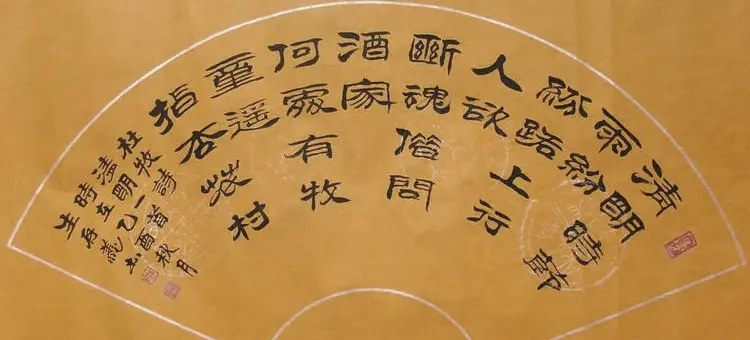 清朙時節
雨紛
紛路上行
人欲
斷魂借問
酒家
何處有牧
童遙
指杏花村
杜牧詩
清明一首
時在乙酉秋月